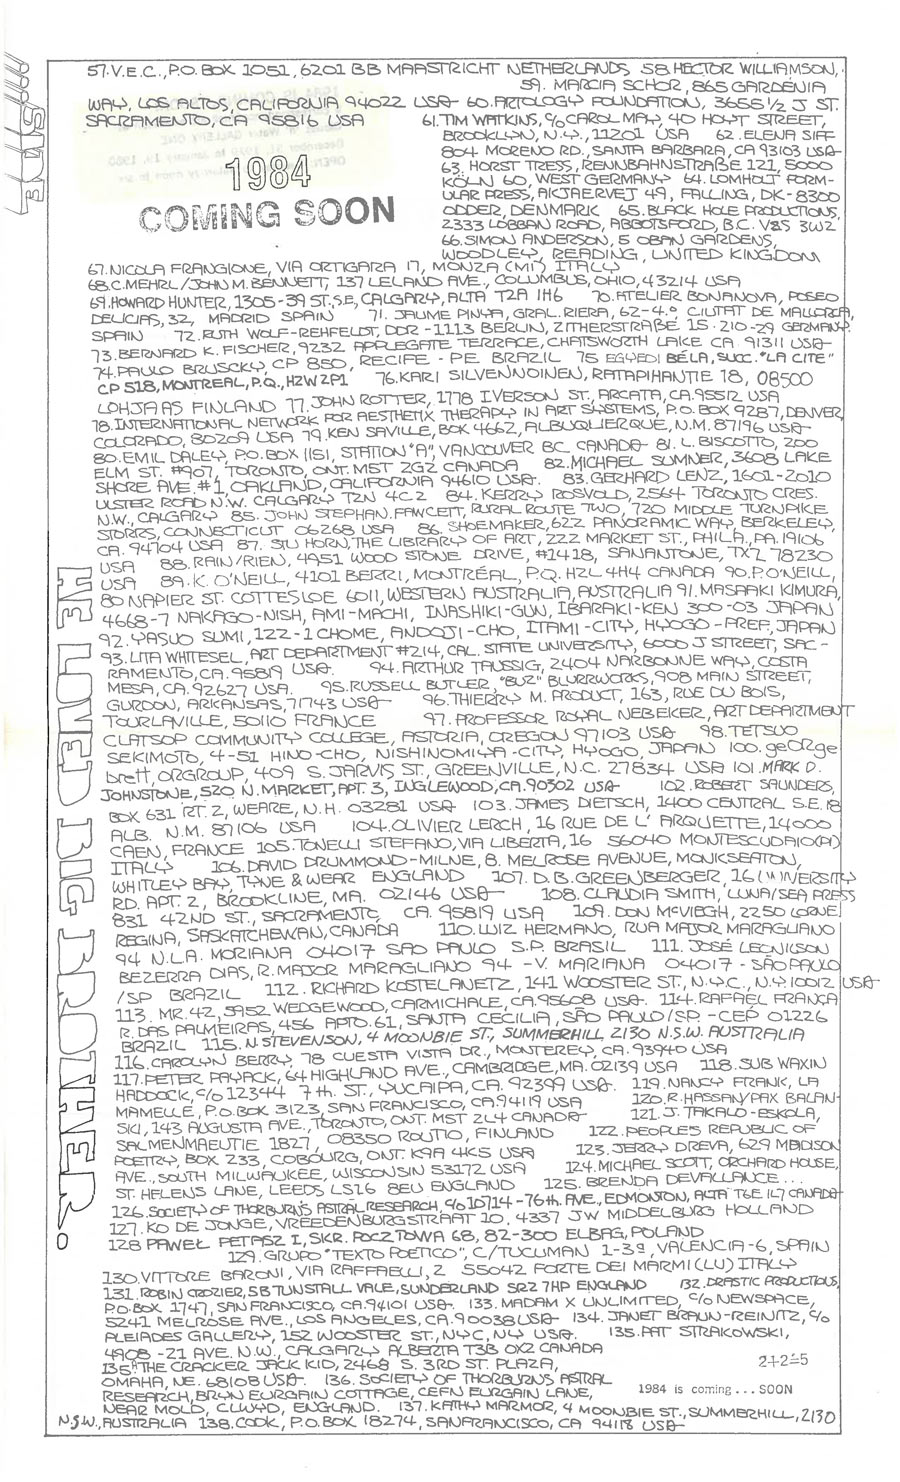 57.V.E.C., P.O. BOX 1051, 6201 BB MAASTRICHT NETHERLANDS, 58.HECTOR WILLIAMSON,
59. MARCIA SCHOR, 865 GARDENIA
WAY, LOS ALTOS, CALIFORNIA 94022 USA 60.ARTOLOGY FOUNDATION, 3655 1/2 J ST.
SACRAMENTO, CA 95816 USA 61.TIM WATKINS, c/o CAROL MAY, 40 HOYT STREET,
BROOKLYN, N.Y., 11201 USA 62.ELENA SIFF
804 MORENO RD., SANTA BARBARA, CA 93103 USA
63. HORST TRESS, RENNBAHNSTRAßE 121, 5000
KÖLN 60, WEST GERMANY 64.LOMHOLT FORM-
ULAR PRESS, AKJAERVEJ 49, FALLING, DK-8300
ODDER, DENMARK 65.BLACK HOLE PRODUCTIONS,
2333 LOBBAN ROAD, ABBOTSFORD, B.C. V2S 3W2
66.SIMON ANDERSON, 5 OBAN GARDENS,
WOODLEY, READING, UNITED KINGDOM
1984
COMING SOON
67.NICOLA FRANGIONE, VIA ORTIGARA 17, MONZA (MI) ITALY
68.C.MEHRL/JOHN M. BENNETT, 137 LELAND AVE., COLUMBUS, OHIO, 43214 USA
69.HOWARD HUNTER, 1305-39 ST.S.E, CALGARY, ALTA T2A 1H6 70.ATELIER BONANOVA, POSEO
DELICIAS, 32, MADRID SPAIN 71. JAUME PINYA, GRAL. RIERA, 62-4.º CIUTAT DE MALLORCA,
SPAIN 72.RUTH WOLF-REHFELDT, DDR-1113 BERLIN, ZITHERSTRAßE 15·210-29 GERMANY
73.BERNARD K. FISCHER, 9232 APPLEGATE TERRACE, CHATSWORTH LAKE CA 91311 USA
74.PAULO BRUSCKY, CP 850, RECIFE-PE BRAZIL 75 EGYEDI BÉLA, SUCC. "LA CITE"
CP 518, MONTREAL, P.Q., H2W 2P1 76.KARI SILVENNOINEN, RATAPIHANTIE 18, 08500
LOHJA AS FINLAND 77.JOHN ROTTER, 1778 IVERSON ST., ARCATA, CA.95512 USA
78.INTERNATIONAL NETWORK FOR AESTHETIX THERAPY IN ART SYSTEMS, P.O. BOX 9287, DENVER,
COLORADO, 80209 USA 79.KEN SAVILLE, BOX 4662, ALBUQUERQUE, N.M. 87196 USA
80.EMIL DALEY, P.O. BOX 1151, STATION "A", VANCOUVER BC CANADA 81. L. BISCOTTO, 200
ELM ST. #907, TORONTO, ONT. M5T 2G2 CANADA 82.MICHAEL SUMNER, 3608 LAKE
SHORE AVE. #1, OAKLAND, CALIFORNIA 94610 USA. 83.GERHARD LENZ, 1601-2010
ULSTER ROAD N.W. CALGARY T2N 4C2 84. KERRY ROSVOLD, 2564 TORONTO CRES.
N.W., CALGARY 85. JOHN STEPHAN.FAWCETT, RURAL ROUTE TWO, 720 MIDDLE TURNPIKE
STORRS, CONNECTICUT 06268 USA 86. SHOEMAKER, 622 PANORAMIC WAY, BERKELEY,
CA. 94704 USA 87. STU HORN, THE LIBRARY OF ART, 222 MARKET ST., PHILA., PA.19106
USA 88.RAIN/RIEN, 4951 WOOD STONE DRIVE, #1418, SANANTONE, TXZ 78230
USA 89.K. O'NEILL, 4101 BERRI, MONTRÉAL, P.Q. H2L 4H4 CANADA 90.P.O'NEILL,
80 NAPIER ST. COTTESLOE 6011, WESTERN AUSTRALIA, AUSTRALIA 91.MASAAKI KIMURA,
4668-7 NAKAGO-NISH, AMI-MACHI, INASHIKI-GUN, IBARAKI-KEN 300-03 JAPAN
92.YASUO SUMI, 122-1 CHOME, ANDOJI-CHO, ITAMI-CITY, HYOGO-PREF, JAPAN
93.LITA WHITESEL, ART DEPARTMENT #214, CAL. STATE UNIVERSITY, 6000 J STREET, SAC-
RAMENTO, CA. 95819 USA. 94.ARTHUR TAUSSIG, 2404 NARBONNE WAY, COSTA
MESA, CA. 92627 USA. 95.RUSSELL BUTLER, "BUZ" BLURRWORKS, 908 MAIN STREET,
GURDON, ARKANSAS, 71743 USA 96.THIERRY M. PRODUCT, 163, RUE DU BOIS,
TOURLAVILLE, 50110 FRANCE 97.PROFESSOR ROYAL NEBEKER, ART DEPARTMENT
CLATSOP COMMUNITY COLLEGE, ASTORIA, OREGON 97103 USA 98.TETSUO
SEKIMOTO, 4-51 HINO-CHO, NISHINOMIYA-CITY, HYOGO, JAPAN 100.geORge
brett, ORGROUP, 409 S. JARVIS ST., GREENVILLE, N.C. 27834 USA 101.MARK D.
JOHNSTONE, 520 N. MARKET, APT. 3, INGLEWOOD, CA.90302 USA 102.ROBERT SAUNDERS,
BOX 631 RT.2, WEARE, N.H. 03281 USA 103.JAMES DIETSCH, 1400 CENTRAL S.E.18
ALB. N.M. 87106 USA 104.OLIVIER LERCH, 16 RUE DE L' ARQUETTE, 14000
CAEN, FRANCE 105.TONELLI STEFANO, VIA LIBERTA, 16 56040 MONTESCUDAIO(PI)
ITALY 106.DAVID DRUMMOND-MILNE, 8. MELROSE AVENUE, MONKSEATON,
WHITLEY BAY, TYNE & WEAR ENGLAND 107. D.B.GREENBERGER, 16 UNIVERSITY
RD. APT. 2, BROOKLINE, MA. 02146 USA 108.CLAUDIA SMITH, LUNA/SEA PRESS
831 42ND ST., SACRAMENTO, CA. 95819 USA 109. DON McVIEGH, 2250 LORNE
REGINA, SASKATCHEWAN, CANADA 110.LUIZ HERMANO, RUA MAJOR MARAGLIANO
94 N.LA. MORIANA 04017 SAO PAULO S.P. BRASIL 111.JOSÉ LEONILSON
BEZERRA DIAS, R.MAJOR MARAGLIANO 94 -V. MARIANA 04017-SÃO PAULO
/SP BRAZIL 112.RICHARD KOSTELANETZ, 141 WOOSTER ST., N.Y.C., N.Y. 10012 USA
113. MR.42, 5952 WEDGEWOOD, CARMICHALE, CA.95608 USA. 114.RAFAEL FRANÇA
R.DAS PALMEIRAS, 456 APTO.61, SANTA CECILIA, SÃO PAULO/SP.-CEP 01226
BRAZIL 115.N.STEVENSON, 4 MOONBIE ST., SUMMERHILL 2130 N.S.W. AUSTRALIA
116.CAROLYN BERRY, 78 CUESTA VISTA DR., MONTEREY, CA.93940 USA
117.PETER PAYACK, 64 HIGHLAND AVE., CAMBRIDGE, MA. 02139 USA 118.SUB WAXIN
HADDOCK, c/o 12344 7th. ST., YUCAIPA, CA. 92399 USA. 119.NANCY FRANK, LA
MAMELLE, P.O.BOX 3123, SAN FRANCISCO, CA.94119 USA 120.R.HASSAN/PAX BALAN-
SKI, 143 AUGUSTA AVE., TORONTO, ONT. M5T 2L4 CANADA 121.J.TAKALO-ESKOLA,
SALMENMAEUTIE 1827, 08350 ROUTIO, FINLAND 122.PEOPLE'S REPUBLIC OF
POETRY, BOX 233, COBOURG, ONT. K9A 4K5 USA 123.JERRY DREVA, 629 MADISON
AVE., SOUTH MILWAUKEE, WISCONSIN 53172 USA 124.MICHAEL SCOTT, ORCHARD HOUSE,
ST. HELENS LANE, LEEDS LS16 8EU ENGLAND 125.BRENDA DEVALLANCE...
126.SOCIETY OF THORBURN'S ASTRAL RESEARCH, c/o 10714-76th. AVE., EDMONTON, ALTA T6E 1L7 CANADA
127.KO DE JONGE, VREEDENBURGSTRAAT 10, 4337 JW MIDDELBURG HOLLAND
128 PAWEŁ PETASZ I, SKR. POCZTOWA 68, 82-300 ELBAG, POLAND
129.GRUPO "TEXTO POETICO", C/TUCUMAN 1-39, VALENCIA-6, SPAIN
130.VITTORE BARONI, VIA RAFFAELLI, 2 55042 FORTE DEI MARMI (LU) ITALY
131.ROBIN CROZIER, 5B TUNSTALL VALE, SUNDERLAND SR2 7HP ENGLAND 132.DRASTIC PRODUCTIONS,
P.O.BOX 1747, SAN FRANCISCO, CA.94101 USA. 133.MADAM X UNLIMITED, c/o NEWSPACE,
5241 MELROSE AVE., LOS ANGELES, CA.90038 USA 134.JANET BRAUN-REINITZ, c/o
PLEIADES GALLERY, 152 WOOSTER ST., NYC, NY USA. 135.PAT STRAKOWSKI,
4908-21 AVE. N.W., CALGARY ALBERTA T3B 0X2 CANADA
135ᴬTHE CRACKER JACK KID, 2468 S. 3RD ST. PLAZA,
OMAHA, NE. 68108 USA. 136.SOCIETY OF THORBURN'S ASTRAL
RESEARCH, BRYN EURGAIN COTTAGE, CEFN EURGAIN LANE,
NEAR MOLD, CLWYD, ENGLAND. 137.KATHY MARMOR, 4 MOONBIE ST., SUMMERHILL, 2130
N.S.W, AUSTRALIA 138.COOK, P.O.BOX 18274, SANFRANCISCO, CA 94118 USA
2+2=5
1984 is coming...SOON
HE LOVED BIG BROTHER.